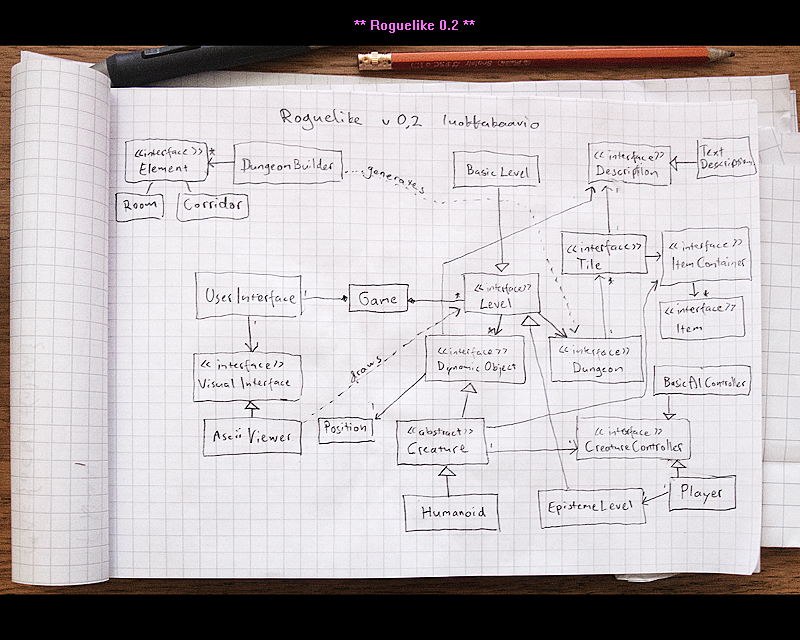 ** Roguelike 0.2 **
Roguelike v 0,2 luokkakaavio
<<interface>>
Element
*
DungeonBuilder
generates
Basic Level
<<interface>>
Description
Text
Description
Room
Corridor
<<interface>>
Tile
<<interface>>
Item Container
*
<<interface>>
Item
User Interface
Game
*
<<interface>>
Level
*
*
<<interface>>
Visual Interface
draws
<<interface>>
Dynamic Object
<<interface>>
Dungeon
Basic AI Controller
Ascii Viewer
Position
<<abstract>>
Creature
<<interface>>
Creature Controller
Humanoid
EpistemeLevel
Player